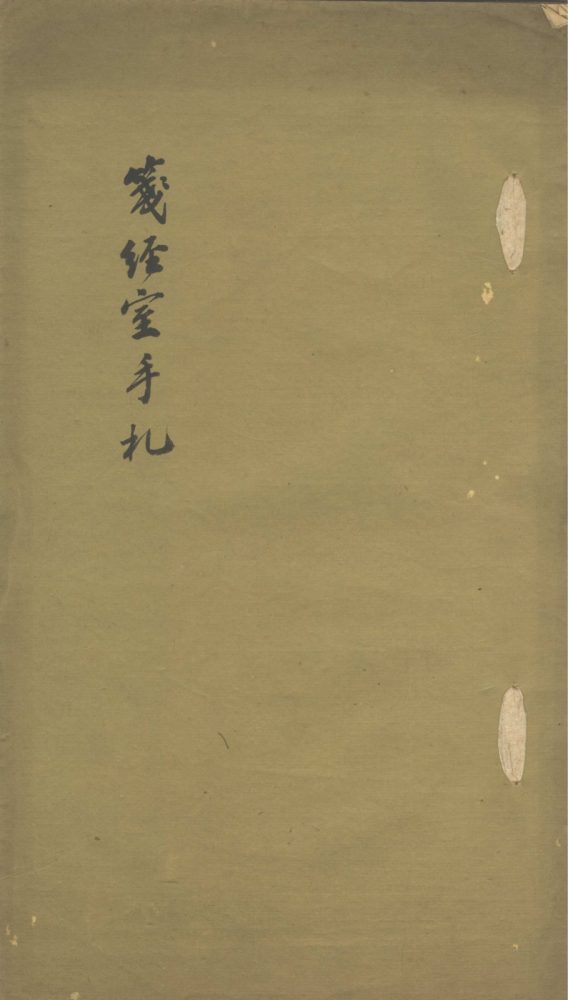 箋經室手札